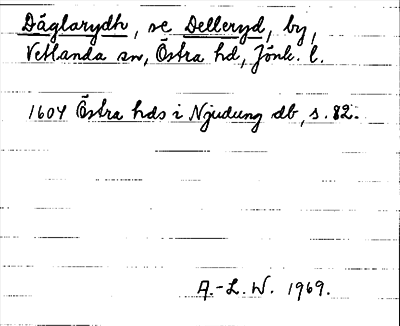 Däglarydh, se Delleryd, by,
Vetlanda sn, Östra hd, Jönk. l.
1604 Östra hds i Njudung db, s. 82.
A.-L. W. 1969.